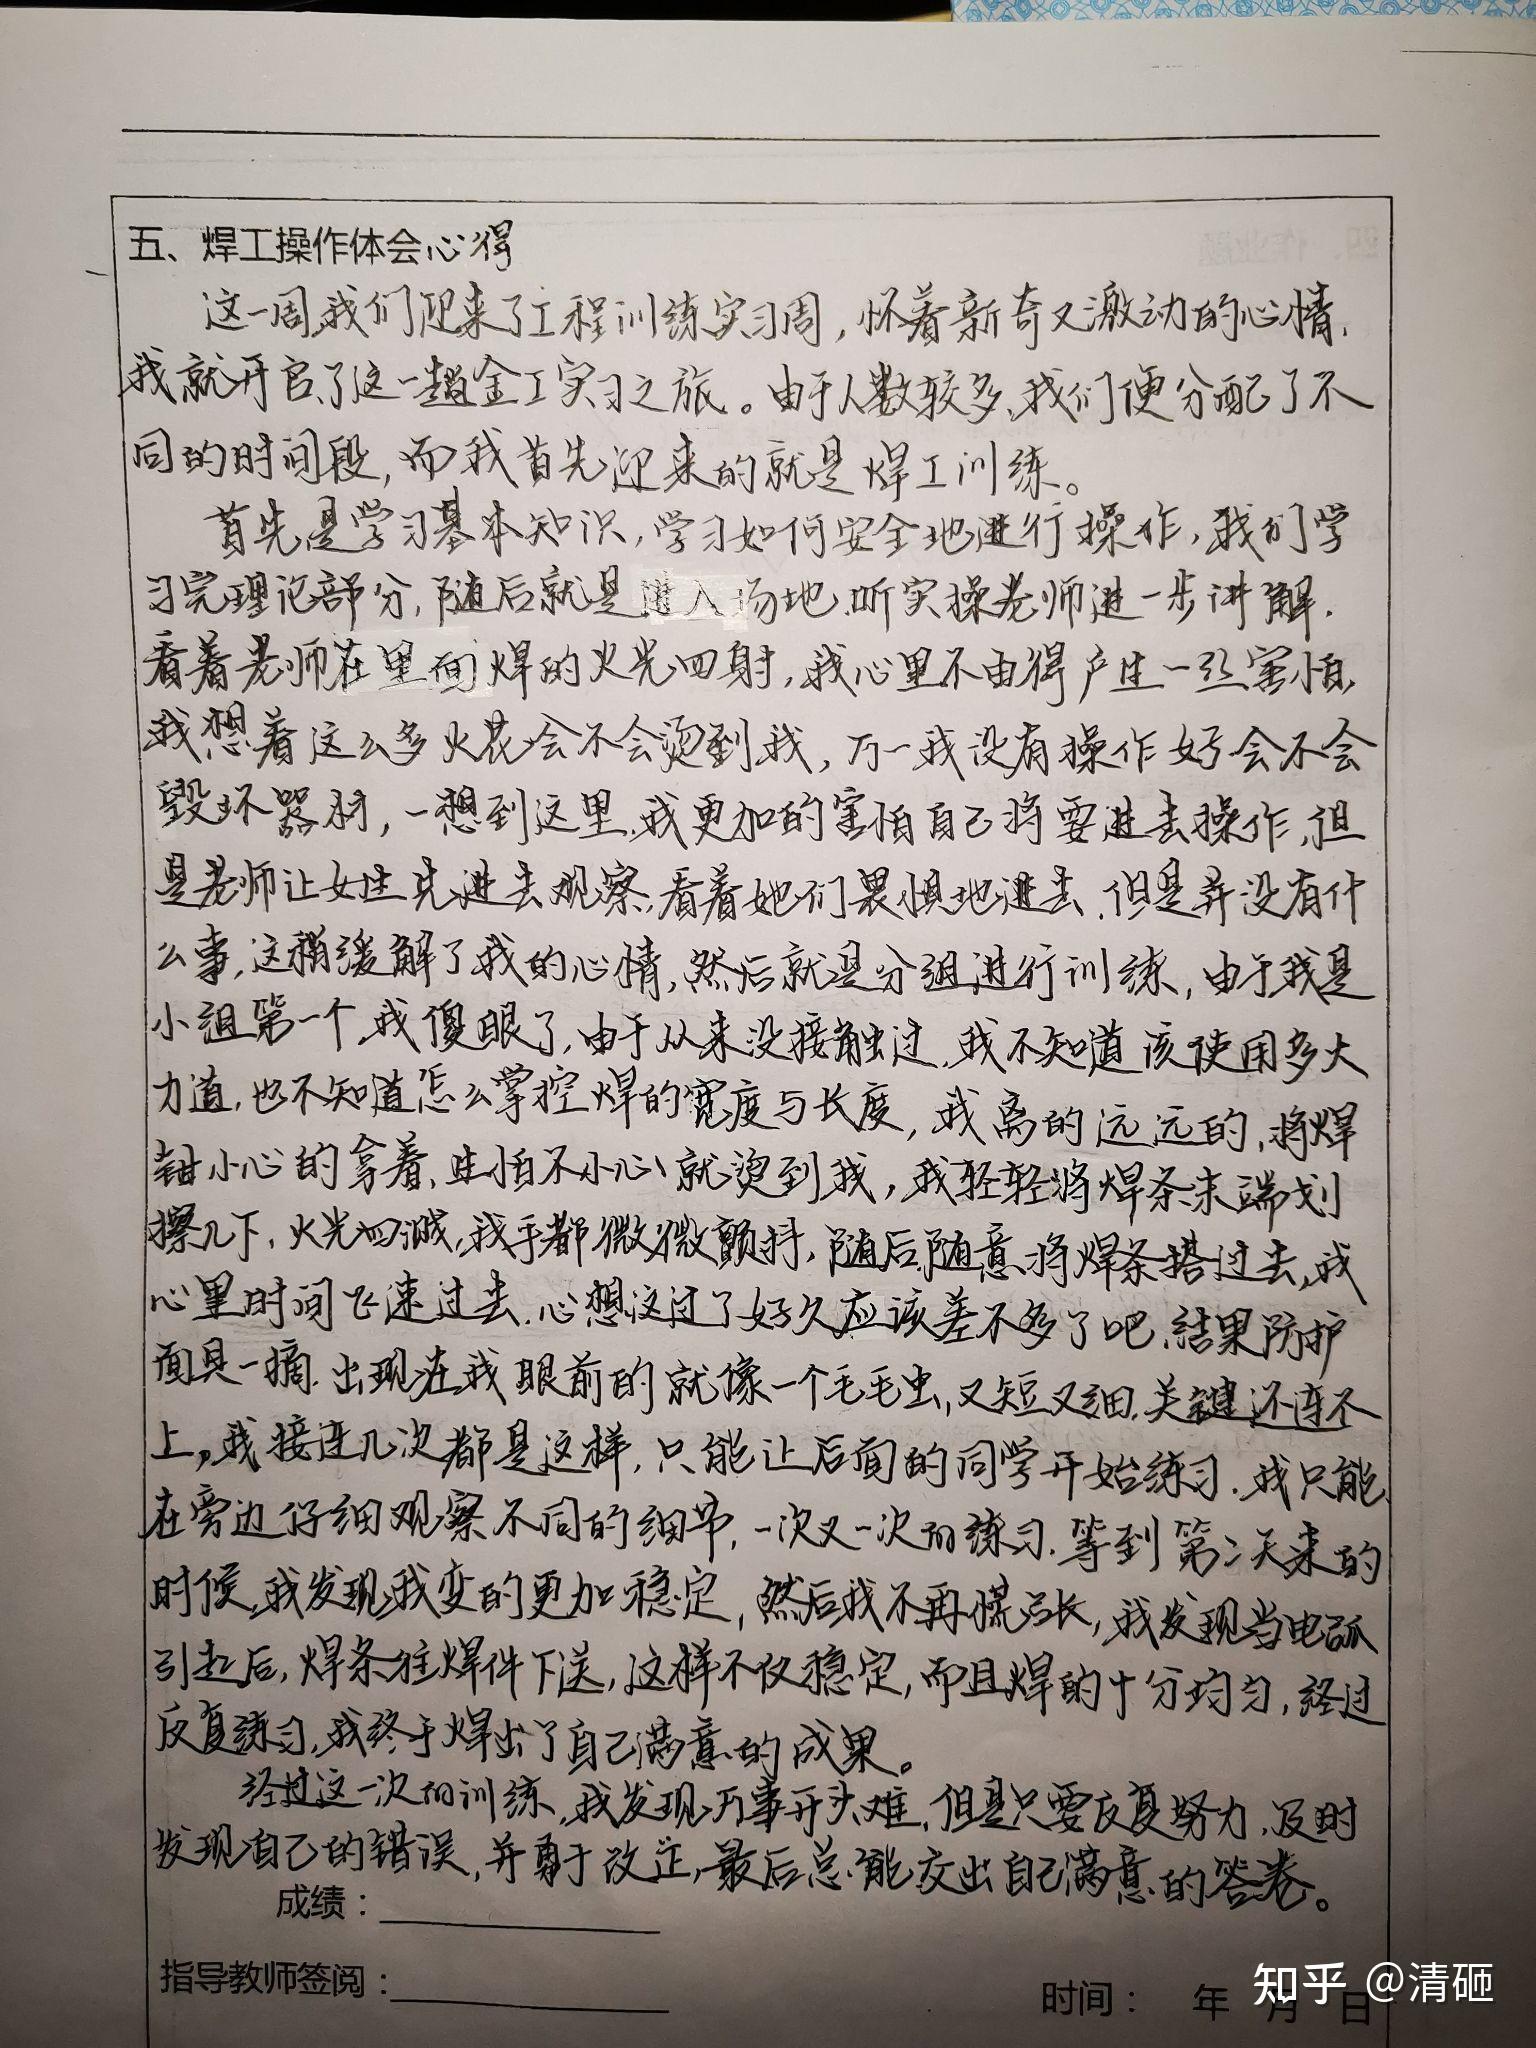 五、焊工操作体会心得
这一周,我们迎来了工程训练实习周，怀着新奇又激动的心情,
我就开启了这一趟金工实习之旅。由于人数较多,我们便分配了不
同的时间段,而我首先迎来的就是焊工训练。
首先是学习基本知识,学习如何安全地进行操作,我们学
习完理论部分,随后就是进入场地,听实操老师进一步讲解.
看着老师在里面焊的火光四射,我心里不由得产生一丝害怕,
我想着这么多火花会不会烫到我,万一我没有操作好会不会
毁坏器材,一想到这里,我更加的害怕自己将要进去操作,但
是老师让女生先进去观察,看着她们畏惧地进去,但是并没有什
么事,这稍缓解了我的心情,然后就是分组进行训练,由于我是
小组第一个,我傻眼了,由于从来没接触过,我不知道该使用多大
力道,也不知道怎么掌控焊的宽度与长度,我离的远远的,将焊
钳小心的拿着,生怕不小心就烫到我,我轻轻将焊条末端划
擦几下,火光四溅,我手都微微颤抖,随后随意将焊条搭过去,我
心里时间飞速过去,心想这过了好久应该差不多了吧,结果防护
面具一摘,出现在我眼前的就像一个毛毛虫,又短又细,关键还连不
上,我接连几次都是这样,只能让后面的同学开始练习,我只能
在旁边仔细观察不同的细节,一次又一次的练习,等到第二天来的
时候,我发现我变的更加稳定,然后我不再慌张,我发现当电弧
引起后,焊条往焊件下送,这样不仅稳定,而且焊的十分均匀,经过
反复练习,我终于焊出了自己满意的成果。
经过这一次的训练,我发现万事开头难,但是只要反复努力,及时
发现自己的错误,并勇于改正,最后总能交出自己满意的答卷。
成绩：
指导教师签阅：
时间： 年 月 日
知乎 @清砸